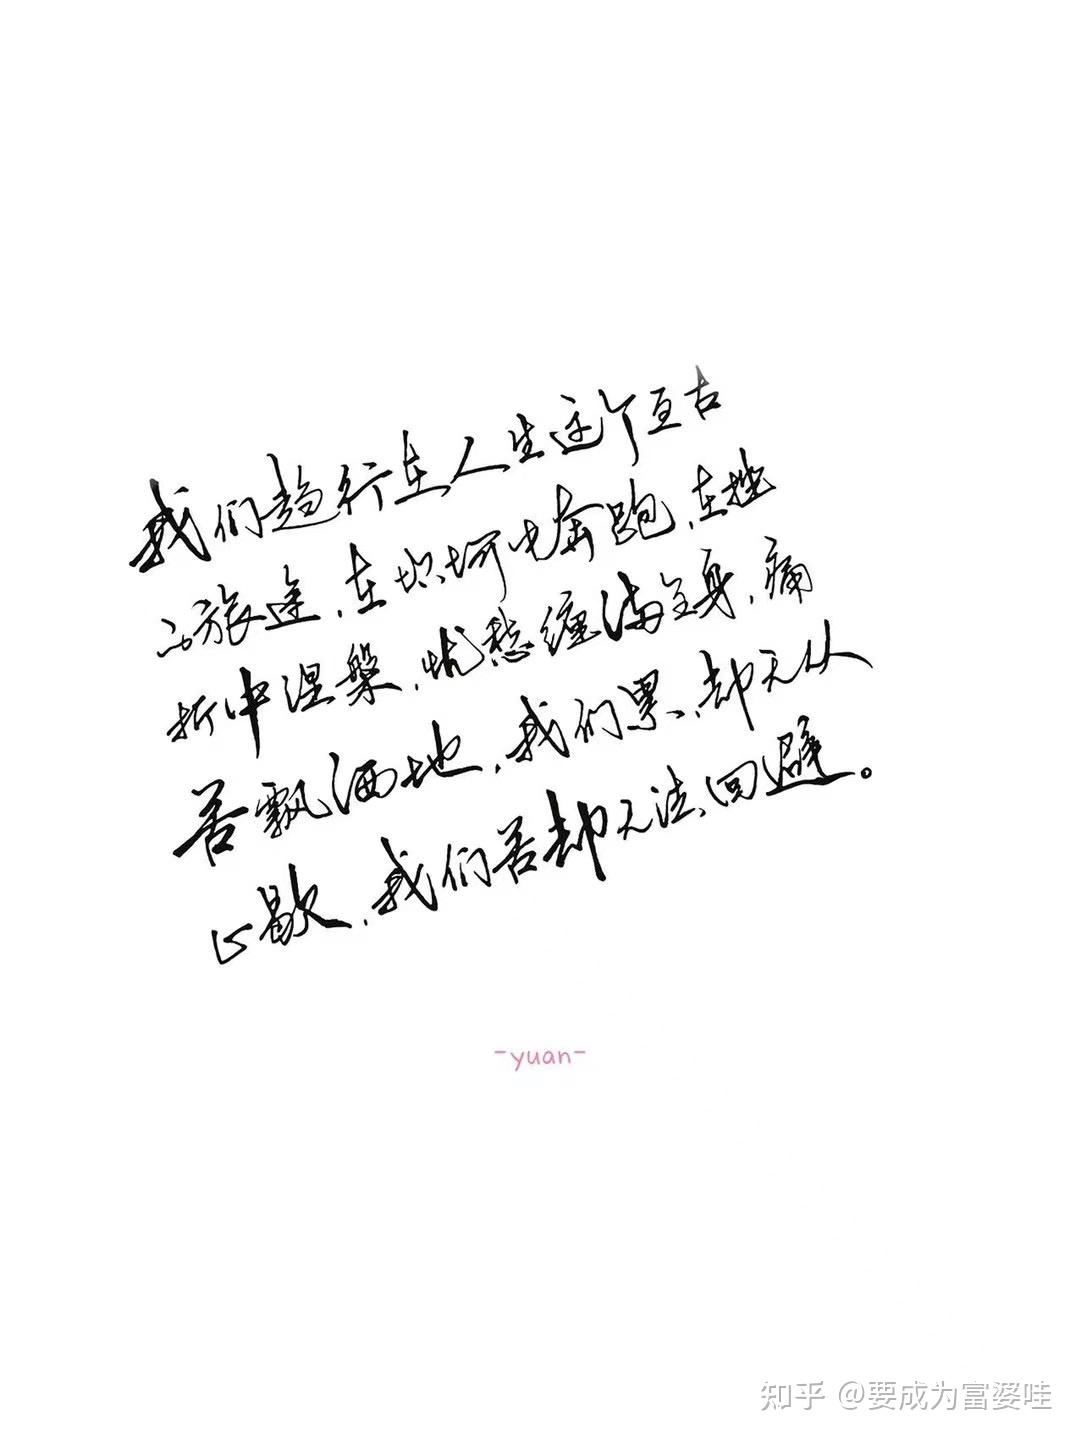 我们趋行在人生这个亘古
的旅途，在坎坷中奔跑，在挫
折中涅槃，忧愁缠满全身，痛
苦飘洒一地，我们累，却无从
止歇，我们苦却无法回避。
-yuan-
知乎 @要成为富婆哇